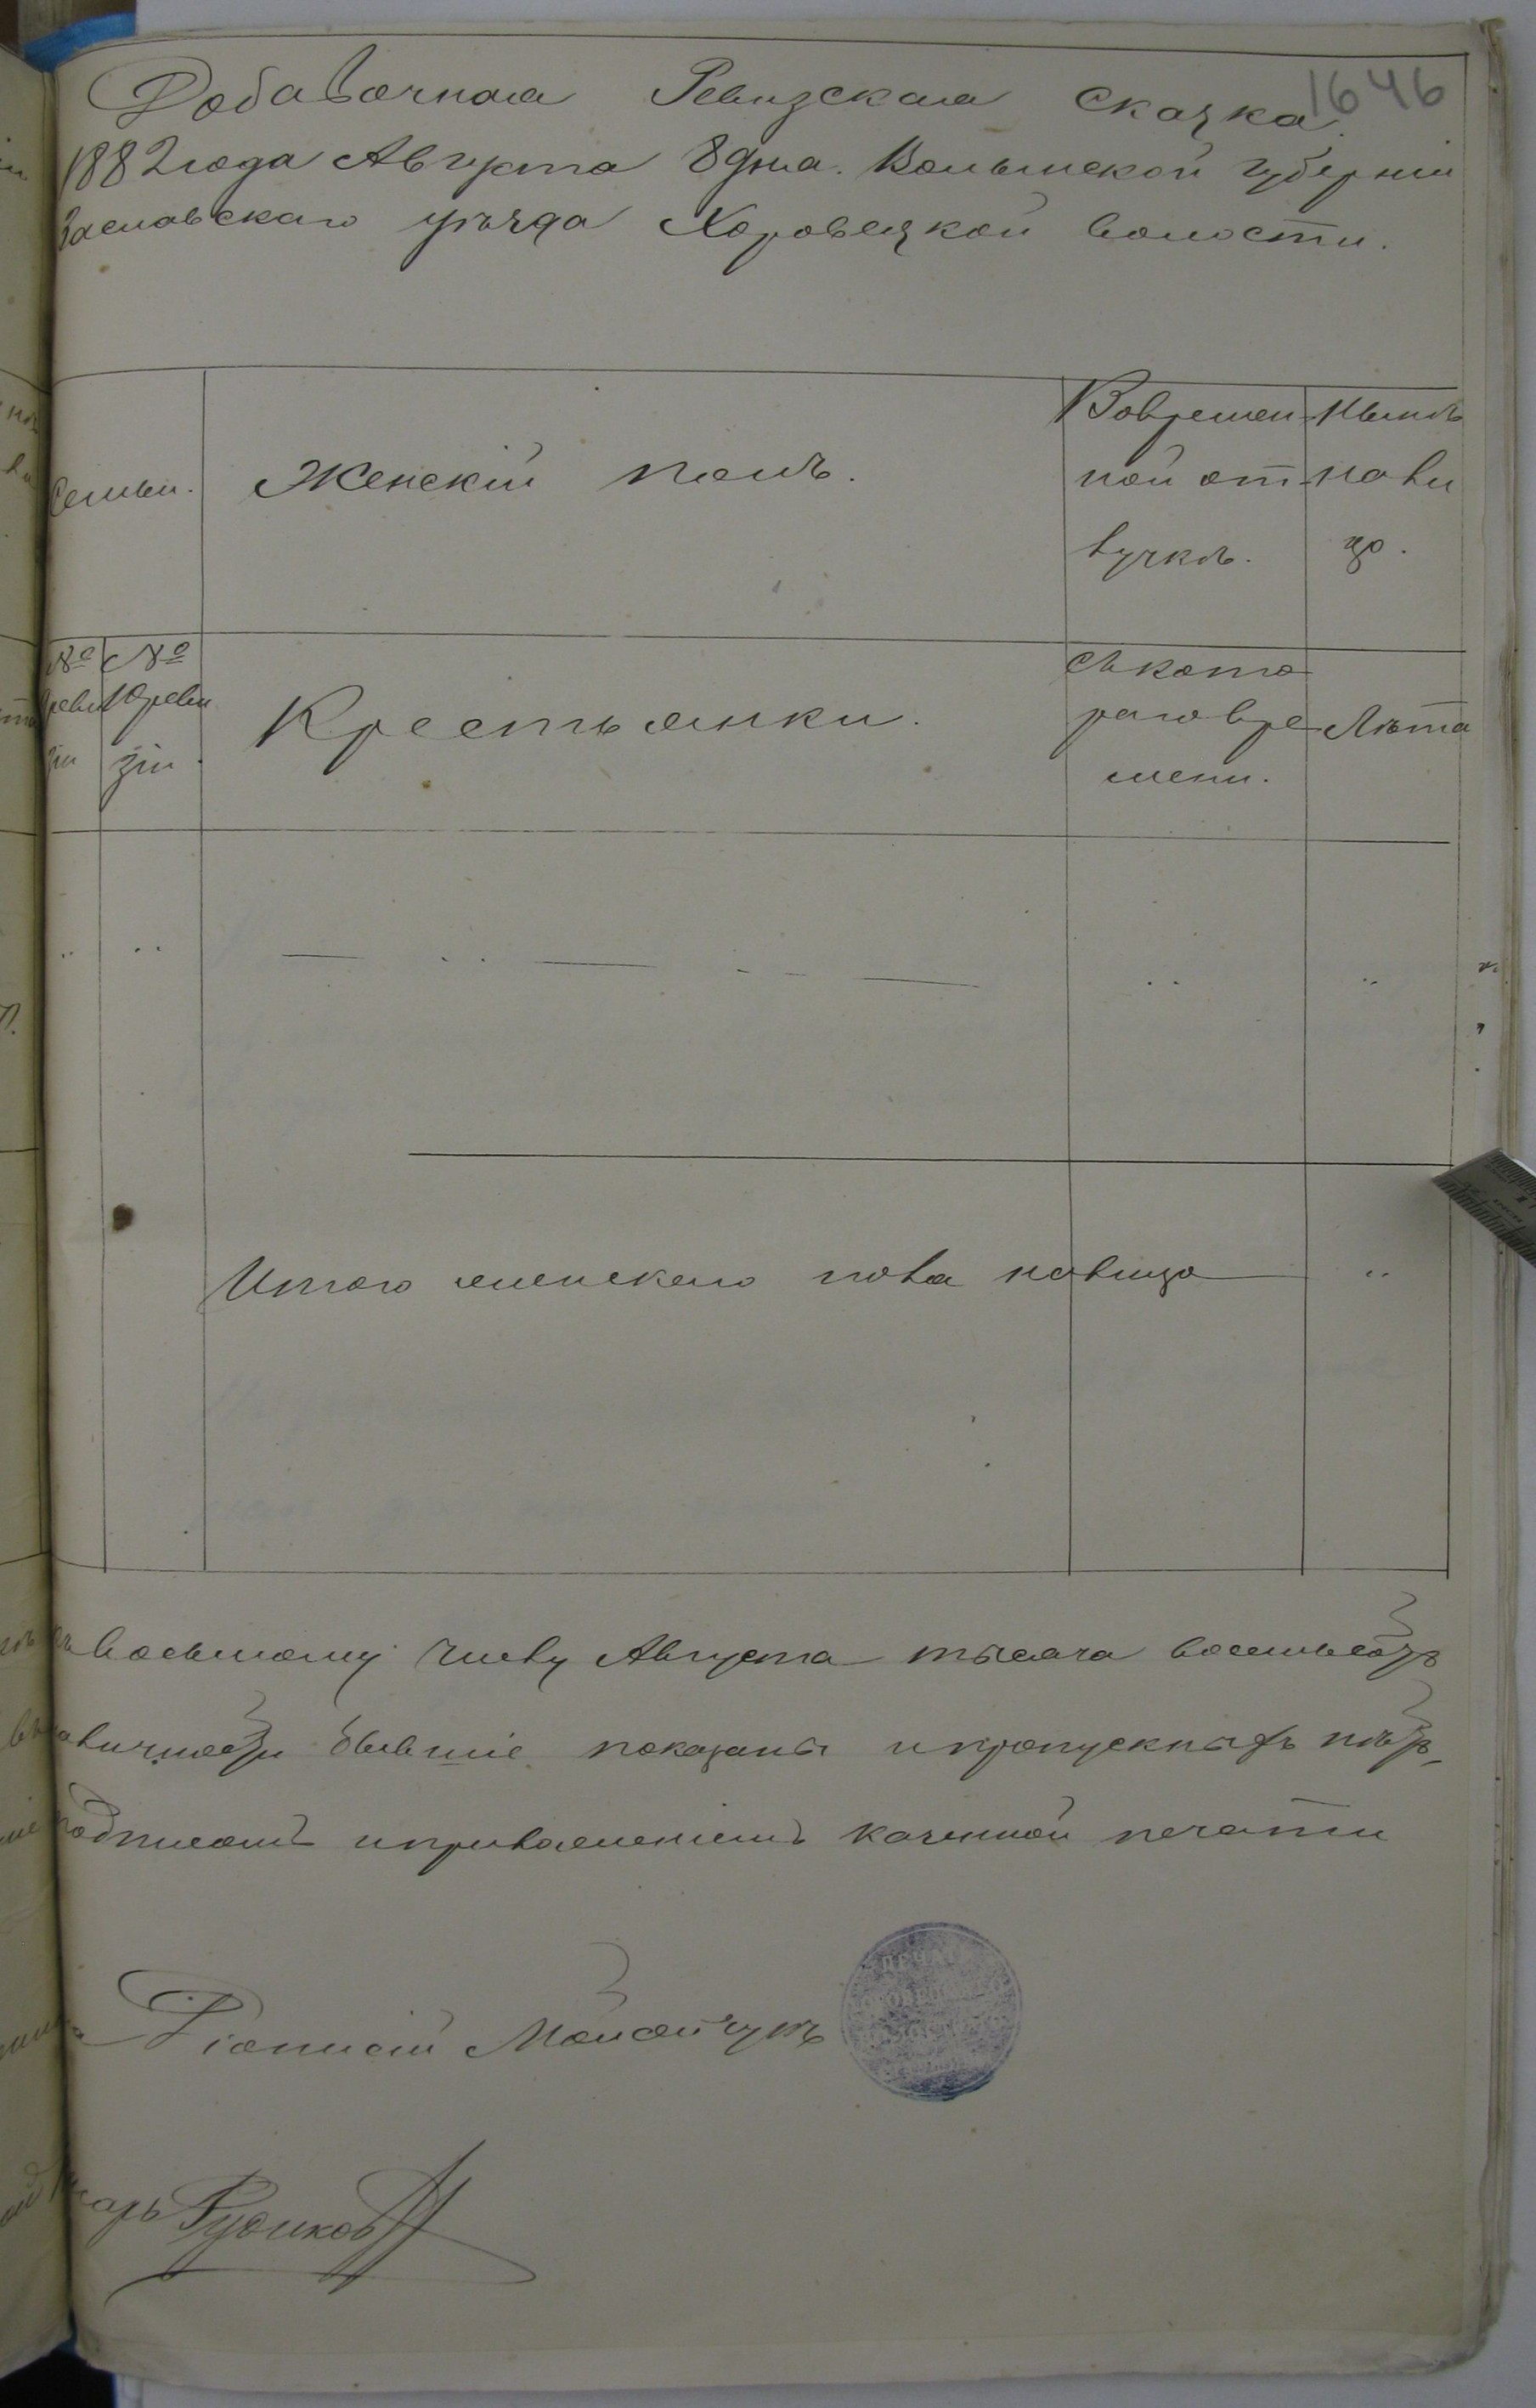 1646
Добавочная Ревизская Сказка.
1882 года Августа 8 дня. Волынской губерніи
Заславскаго уѣзда Хоровецкой волости.
Семьи.
Женскій полъ.
Вовремен
ной от
лучкѣ.
Нынѣ
нали
цо.
№ реви зіи
№ 10 реви зіи
Крестьянки.
Съ кото
раго вре
мени.
Лѣта
Итого женскаго пола налицо
восьмому числу Августа тысяча восемьсотъ
аличности бывшіе показаны и пропускныхъ нѣтъ,
подписомъ и приложеніемъ казенной печати
Діонисій
сарь Рудиковъ